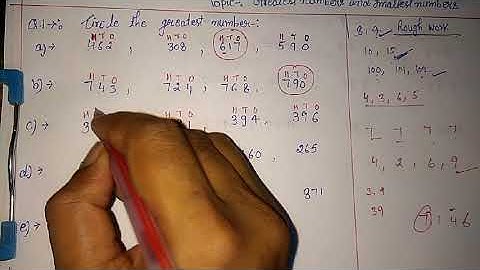 Topic:- Greatest numbers and Smallest numbers
Q.1→: Circle the greatest number:-
H T O H T O H T O
a) → 462, 308, 617, 590
H T O H T O H T O H T O
b) → 743, 724, 768, 790
H T O H T O
c) → 3 394, 396
d) → 60, 265
871
e) →
8, 9 Rough work
10, 15
100, 101, 109
4, 3, 6, 5
7 7 7 7
4, 2, 6, 9
3, 9
39
7 1 4 6